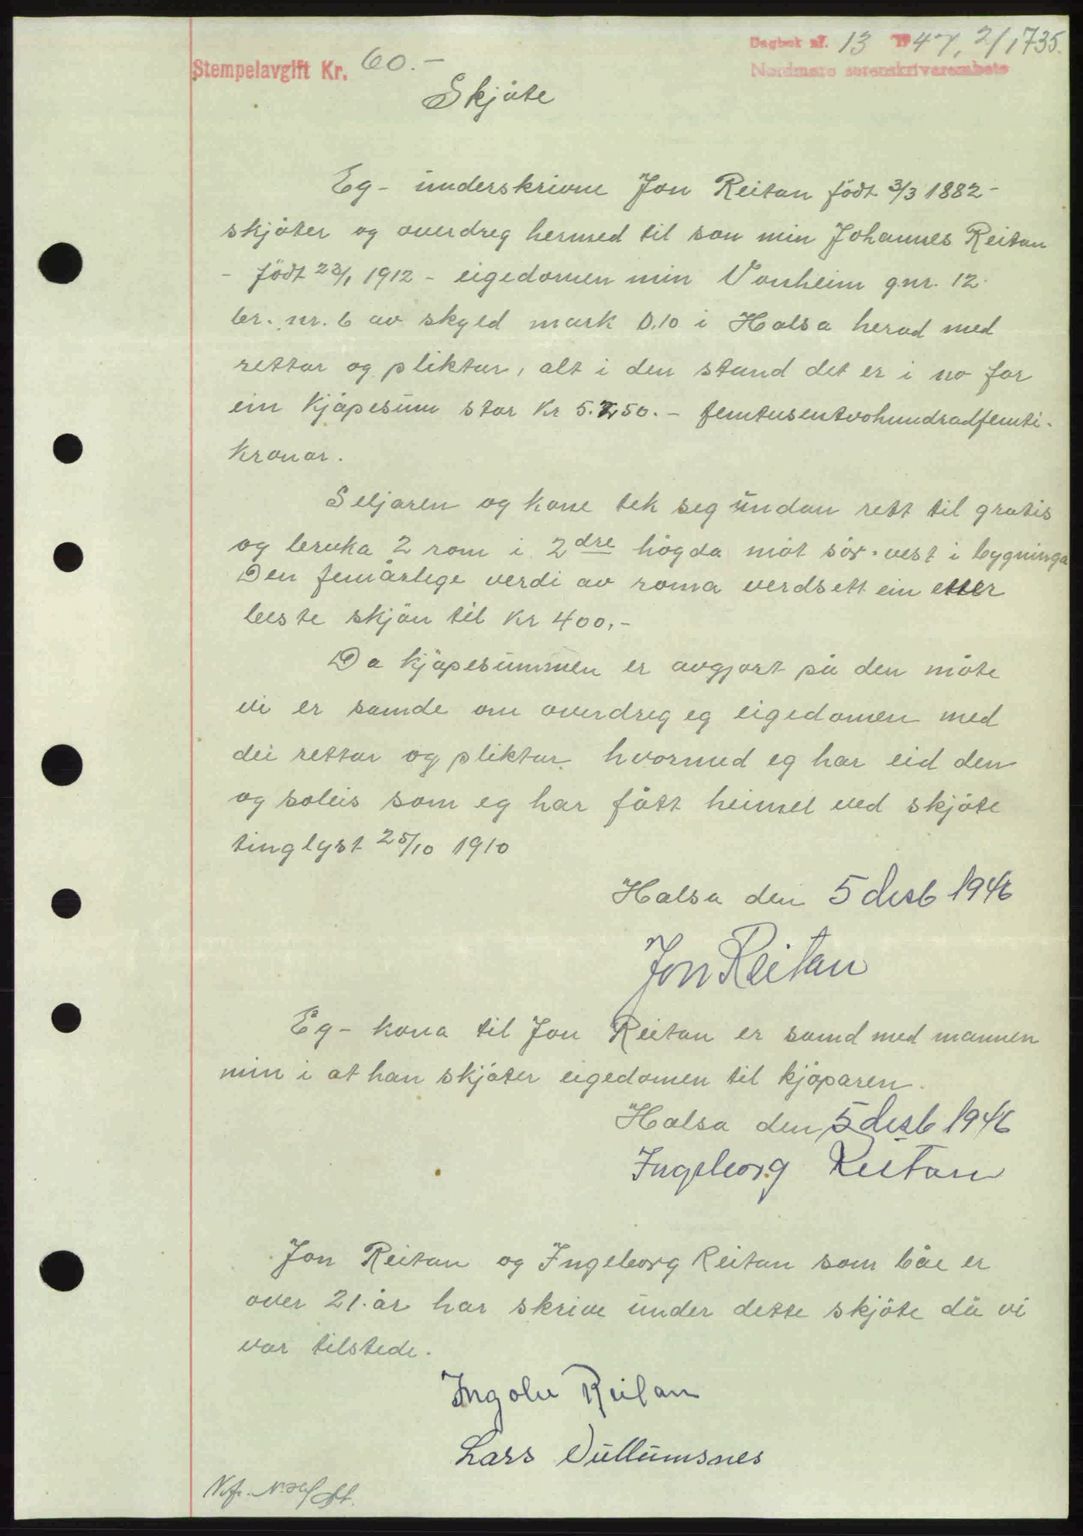 Stempelavgift Kr. 60.-
Dagbok nr. 13 1947, 2/1 735.
Nordmøre sorenskrivarembete
Skjöte
Eg - underskrivne Jon Reitan födt 3/3 1882 -
skjöter og overdreg hermed til son min Johannes Reitan
- födt 23/1 1912 - eigedomen min Vonheim gnr. 12
br. nr. 6 av skyld mark 0.10 i Halsa herad med
rettar og pliktar, alt i den stand det er i no for
ein kjöpesum stor kr 5.250.- femtusentvohundradfemti-
kronor.
Seljaren og kone tek seg undan rett til gratis
og bruka 2 rom i 2dre högda möt sör-vest i bygninga
Den femårlege verdi av roma verdsett ein etter
beste skjön til kr 400,-
Da kjöpesummen er avgjort på den måte
vi er samde om overdreg eg eigedomen med
dei rettar og pliktar hvormed eg har eid den
og soleis som eg har fått heimel ved skjöte
tinglyst 25/10 1910
Halsa den 5 desb 1946
Jon Reitan
Eg - kona til Jon Reitan er samd med mannen
min i at han skjöter eigedomen til kjöparen.
Halsa den 5 desb 1946
Ingeborg Reitan
Jon Reitan og Ingeborg Reitan som båe er
over 21. år har skrive under dette skjöte då vi
var tilstede.
Ingolv Reitan
Lars Vullumsnes